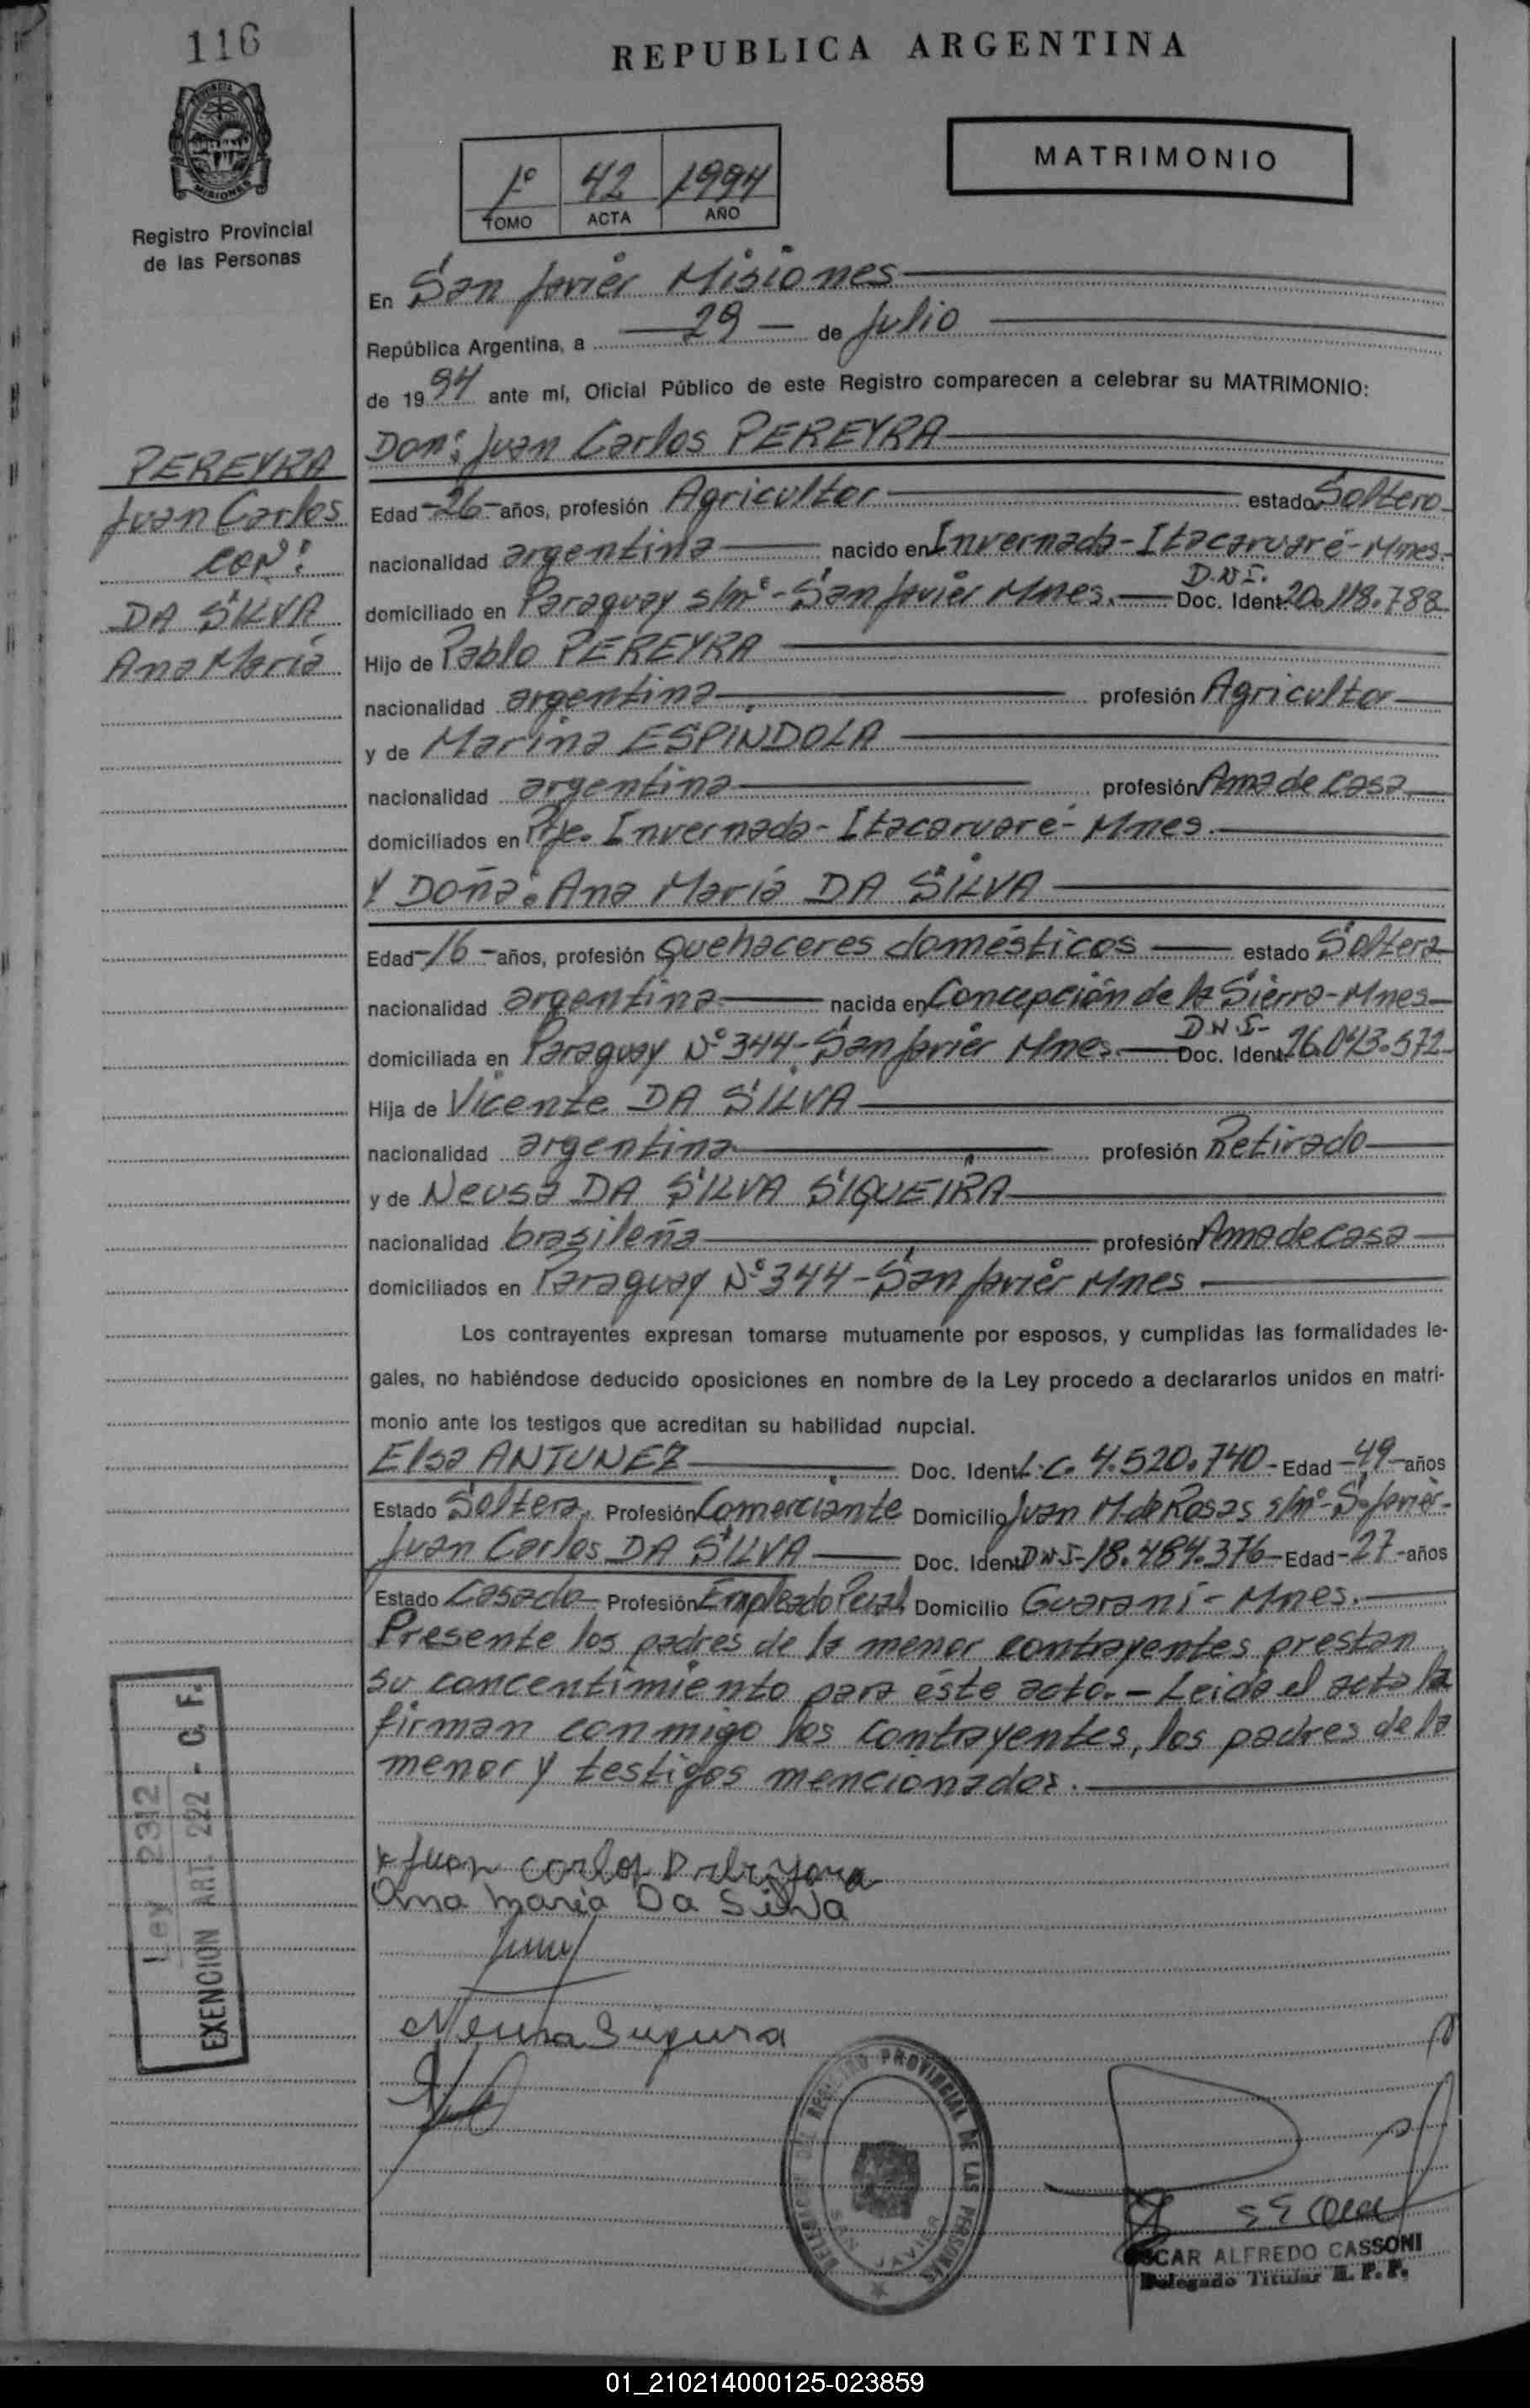 116
REPUBLICA ARGENTINA
PROVINCIA DE
MISIONES
Registro Provincial
de las Personas
MATRIMONIO
1º 42 1994
TOMO ACTA AÑO
En San Javier Misiones
República Argentina, a 29 de Julio
de 1994 ante mí, Oficial Público de este Registro comparecen a celebrar su MATRIMONIO:
Don: Juan Carlos PEREYRA
PEREYRA
Juan Carlos
CON:
DA SILVA
Ana María
Edad -26- años, profesión Agricultor estado Soltero
nacionalidad argentina nacido en Invernada-Itacaruaré-Mnes.
domiciliado en Paraguay s/nº-San Javier Mnes. Doc. Ident. D.N.I. 20.118.788
Hijo de Pablo PEREYRA
nacionalidad argentina profesión Agricultor
y de Marina ESPINDOLA
nacionalidad argentina profesión Ama de casa
domiciliados en Pje. Invernada-Itacaruaré-Mnes.
Y Doña: Ana María DA SILVA
Edad -16- años, profesión quehaceres domésticos estado Soltera
nacionalidad argentina nacida en Concepción de la Sierra-Mnes
domiciliada en Paraguay Nº 344-San Javier Mnes. Doc. Ident. D.N.I- 26.043.572
Hija de Vicente DA SILVA
nacionalidad argentina profesión Retirado
y de Neusa DA SILVA SIQUEIRA
nacionalidad brasileña profesión Ama de casa
domiciliados en Paraguay Nº 344-San Javier Mnes
Los contrayentes expresan tomarse mutuamente por esposos, y cumplidas las formalidades le-
gales, no habiéndose deducido oposiciones en nombre de la Ley procedo a declararlos unidos en matri-
monio ante los testigos que acreditan su habilidad nupcial.
Elsa ANTUNEZ Doc. Ident. L.C. 4.520.740- Edad -49- años
Estado Soltera. Profesión Comerciante Domicilio Juan M. de Rosas s/nº-S. Javier-
Juan Carlos DA SILVA Doc. Ident. D.N.I-18.484.376- Edad -27- años
Estado Casado Profesión Empleado Pcial. Domicilio Guaraní-Mnes.
Presente los padres de la menor contrayentes prestan
su concentimiento para éste acto.- Leida el acta la
firman conmigo los contrayentes, los padres de la
menor y testigos mencionados.
Ley 2312
EXENCION ART. 222 - C. F.
Juan Carlos
Ana María Da Silva
DELEGACION DEL REGISTRO PROVINCIAL DE LAS PERSONAS
SAN JAVIER
OSCAR ALFREDO CASSONI
Delegado Titular R. P. P.
01_210214000125-023859